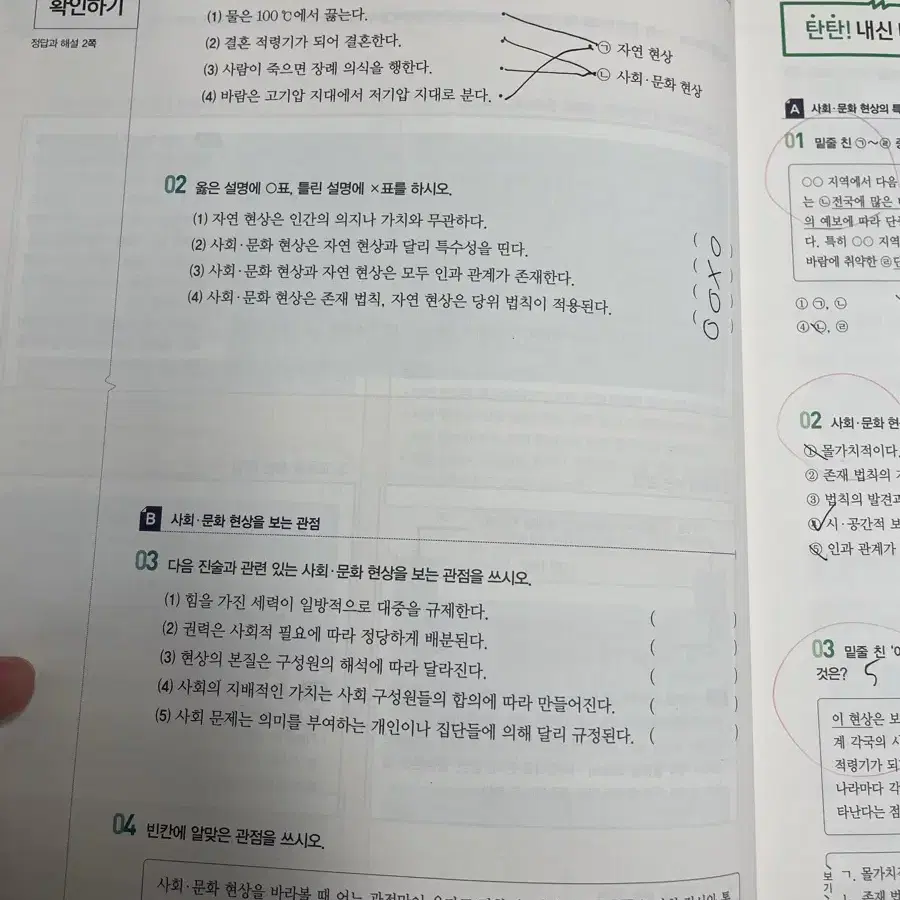 확인하기
정답과 해설 2쪽
(1) 물은 100 ℃에서 끓는다.
(2) 결혼 적령기가 되어 결혼한다.
(3) 사람이 죽으면 장례 의식을 행한다.
(4) 바람은 고기압 지대에서 저기압 지대로 분다.
㉠ 자연 현상
㉡ 사회·문화 현상
02 옳은 설명에 ○표, 틀린 설명에 ×표를 하시오.
(1) 자연 현상은 인간의 의지나 가치와 무관하다. ( O )
(2) 사회·문화 현상은 자연 현상과 달리 특수성을 띤다. ( X )
(3) 사회·문화 현상과 자연 현상은 모두 인과 관계가 존재한다. ( O )
(4) 사회·문화 현상은 존재 법칙, 자연 현상은 당위 법칙이 적용된다. ( O )
B 사회·문화 현상을 보는 관점
03 다음 진술과 관련 있는 사회·문화 현상을 보는 관점을 쓰시오.
(1) 힘을 가진 세력이 일방적으로 대중을 규제한다. ( )
(2) 권력은 사회적 필요에 따라 정당하게 배분된다. ( )
(3) 현상의 본질은 구성원의 해석에 따라 달라진다. ( )
(4) 사회의 지배적인 가치는 사회 구성원들의 합의에 따라 만들어진다. ( )
(5) 사회 문제는 의미를 부여하는 개인이나 집단들에 의해 달리 규정된다. ( )
04 빈칸에 알맞은 관점을 쓰시오.
사회·문화 현상을 바라볼 때 어느
탄탄! 내신
A 사회·문화 현상의 특
01 밑줄 친 ㉠~㉣ 중
○○ 지역에서 다음
는 ㉡전국에 많은
의 예보에 따라 단
다. 특히 ○○ 지역
바람에 취약한 ㉣단
① ㉠, ㉡
④ ㉡, ㉣
02 사회·문화 현
① 몰가치적이다.
② 존재 법칙의
③ 법칙의 발견과
④ 시·공간적 보
⑤ 인과 관계가
03 밑줄 친 '이
것은? 5
이 현상은 보
계 각국의 사
적령기가 되
나라마다 각
타난다는 점
보기
ㄱ. 몰가치적
ㄴ. 존재 법